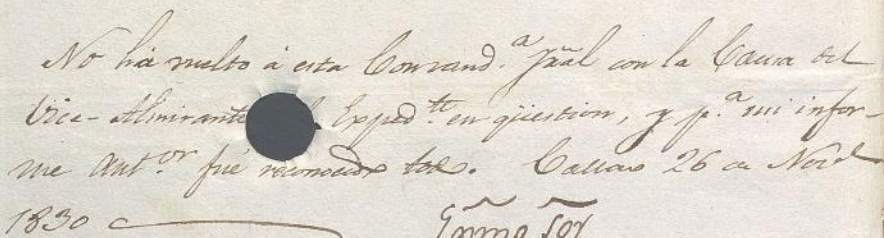 No há vuelto á esta Comand.ª Jral con la Causa del
Vice-Almirante Exped.te en qüestion, y p.ª mi infor-
me ant.or fué reconocido todo. Callao 26 de
1830
Exmo Sor